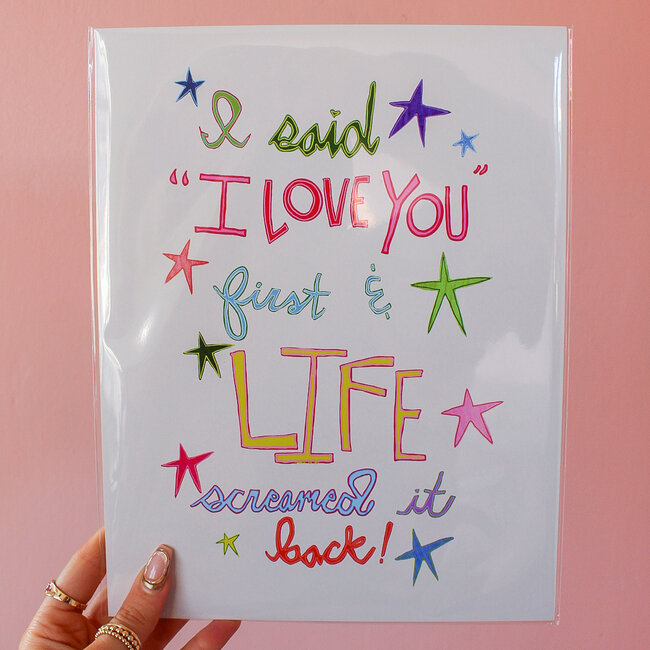 I said
"I LOVE YOU"
first &
LIFE
screamed it
back!